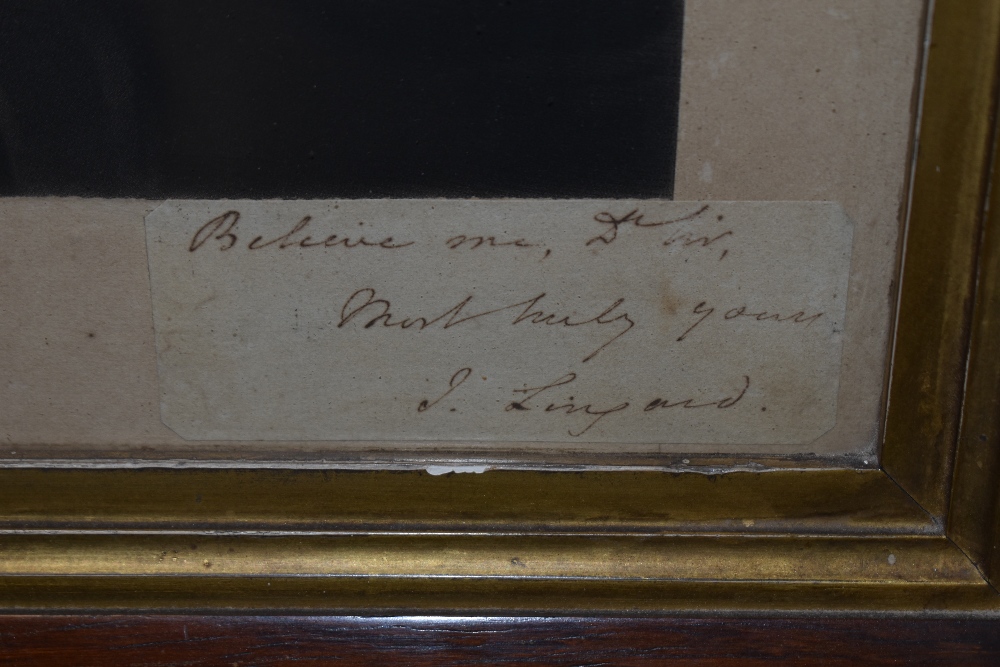 Believe me, Dr Sir,
Most truly yours
J. Lingard.